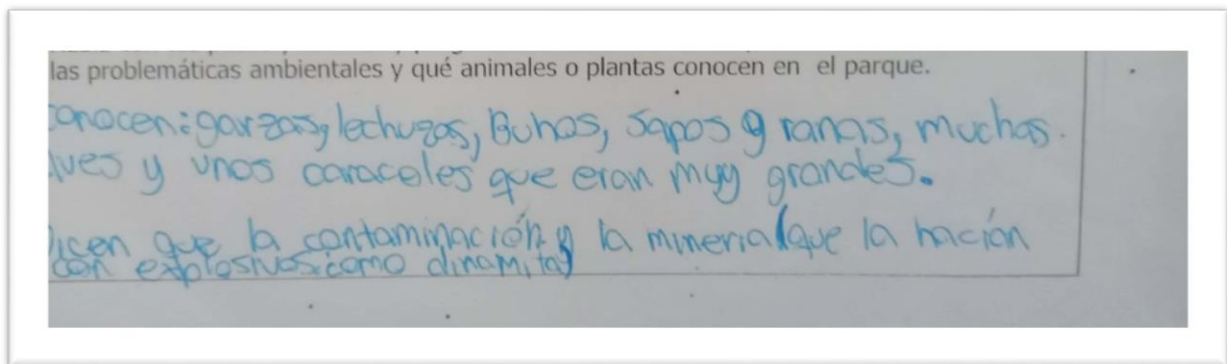 las problemáticas ambientales y qué animales o plantas conocen en el parque.
conocen: garzas, lechuzas, Buhos, sapos y ranas, muchas
aves y unos caracoles que eran muy grandes.
Dicen que la contaminación y la mineria (que la hacían
con explosivos como dinamita)